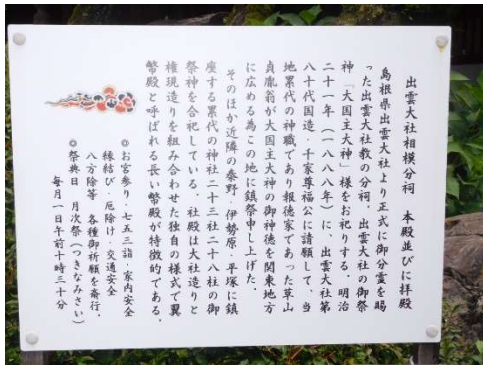 出雲大社相模分祠 本殿並びに拝殿
島根県出雲大社より正式に御分霊を賜
った出雲大社教の分祠・出雲大社の御祭
神「大国主大神」様をお祀りする・明治
二十一年(一八八八年)に、出雲大社第
八十代国造・千家尊福公に請願して、当
地累代の神職であり報徳家であった草山
貞胤翁が大国主大神の御神徳を関東地方
に広める為この地に鎮祭申し上げた・
そのほか近隣の秦野・伊勢原・平塚に鎮
座する累代の神社二十三社二十八柱の御
祭神を合祀している・社殿は大社造りと
権現造りを組み合わせた独自の様式で翼
幣殿と呼ばれる長い幣殿が特徴的である・
◎お宮参り・七五三詣・家内安全
縁結び・厄除け・交通安全
八方除等・各種御祈願を斎行・
◎祭典日 月次祭(つきなみさい)
毎月一日午前十時三十分